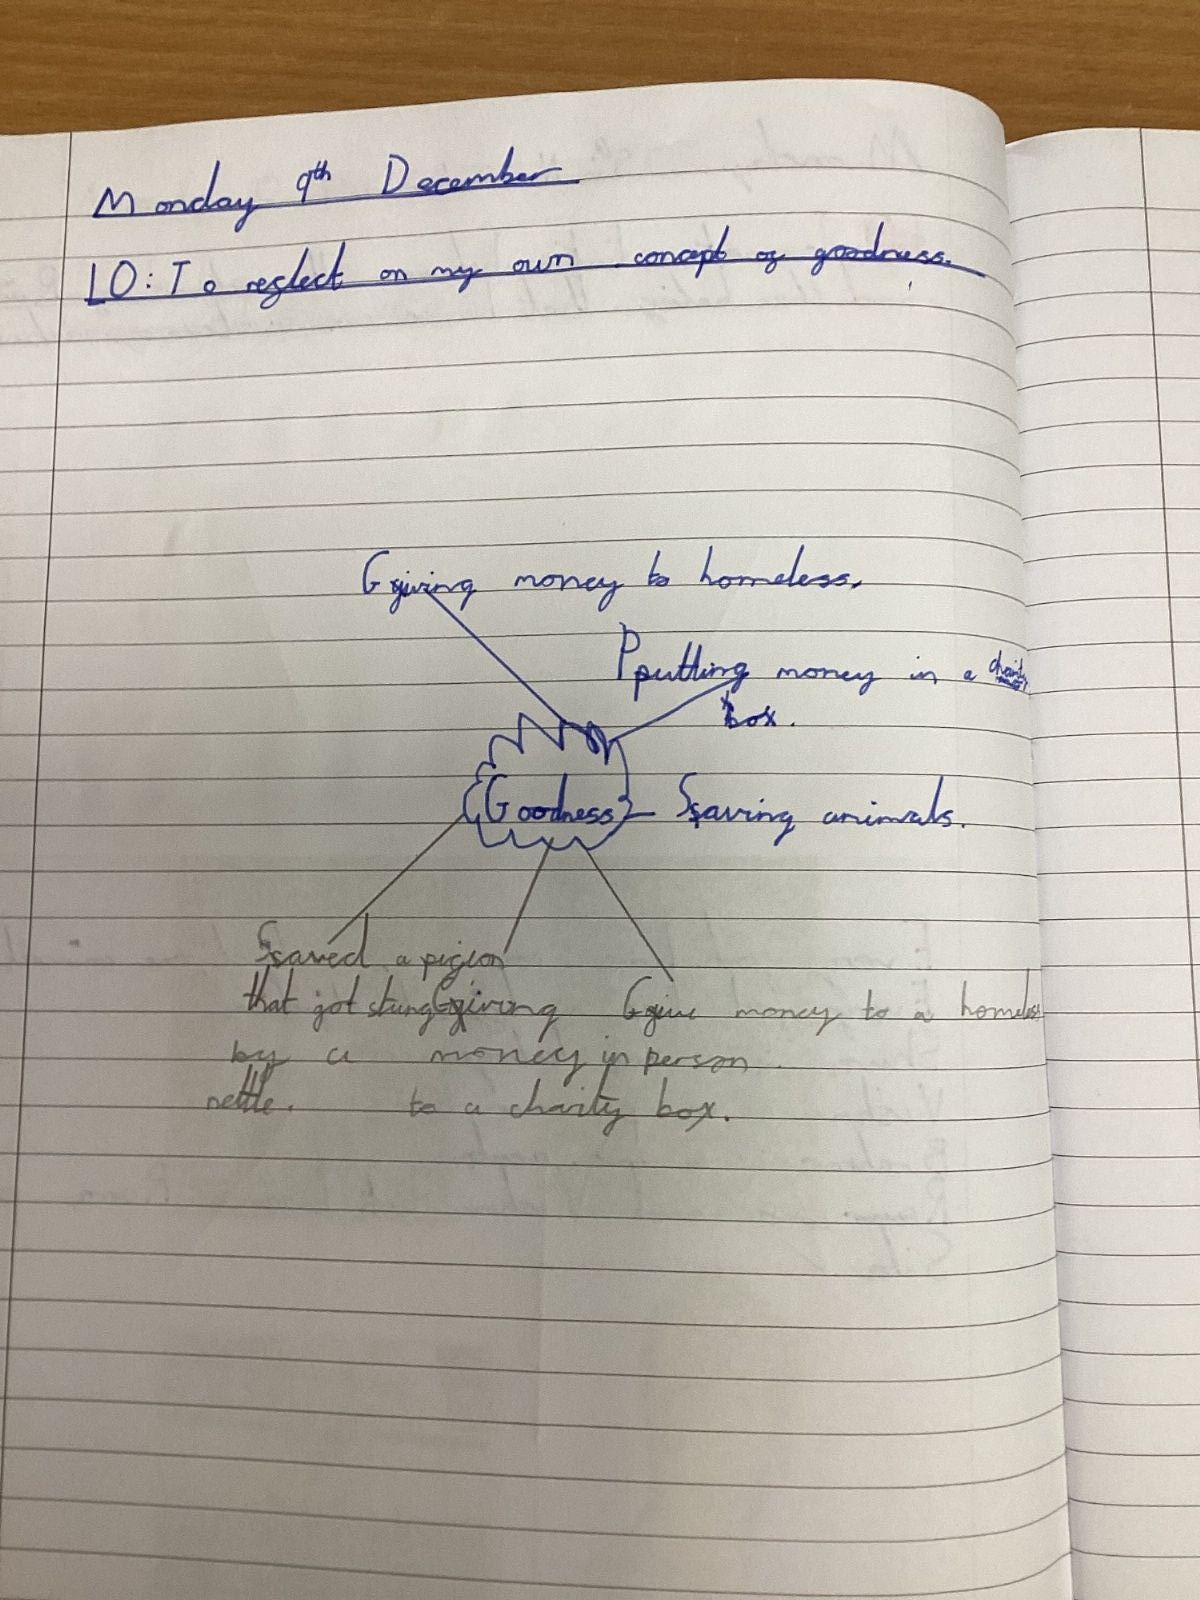 Monday 9th December
LO: To reglect on my own concept og goodness.
Ggiving money to homeless.
Pputting money in a charity
box.
Goodness
Ssaving animals.
Ssaved a pigion
that got stung
by a
nettle.
Ggiving
money in
to a charity box.
Ggive money to a homeless
person.